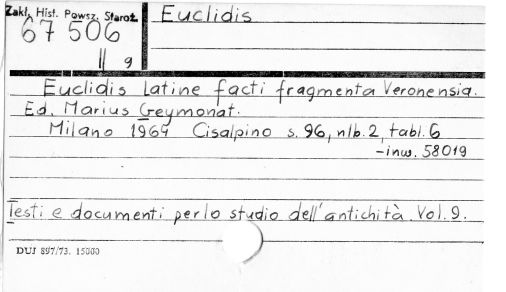 Zakł. Hist. Powsz. Staroż.
67506
II 9
Euclidis
Euclidis latine facti fragmenta Veronensia.
Ed. Marius Geymonat.
Milano 1964 Cisalpino s. 96, nlb. 2, tabl. 6
-inw. 58019
Testi e documenti per lo studio dell'antichità. Vol. 9.
DUJ 897/73. 15000